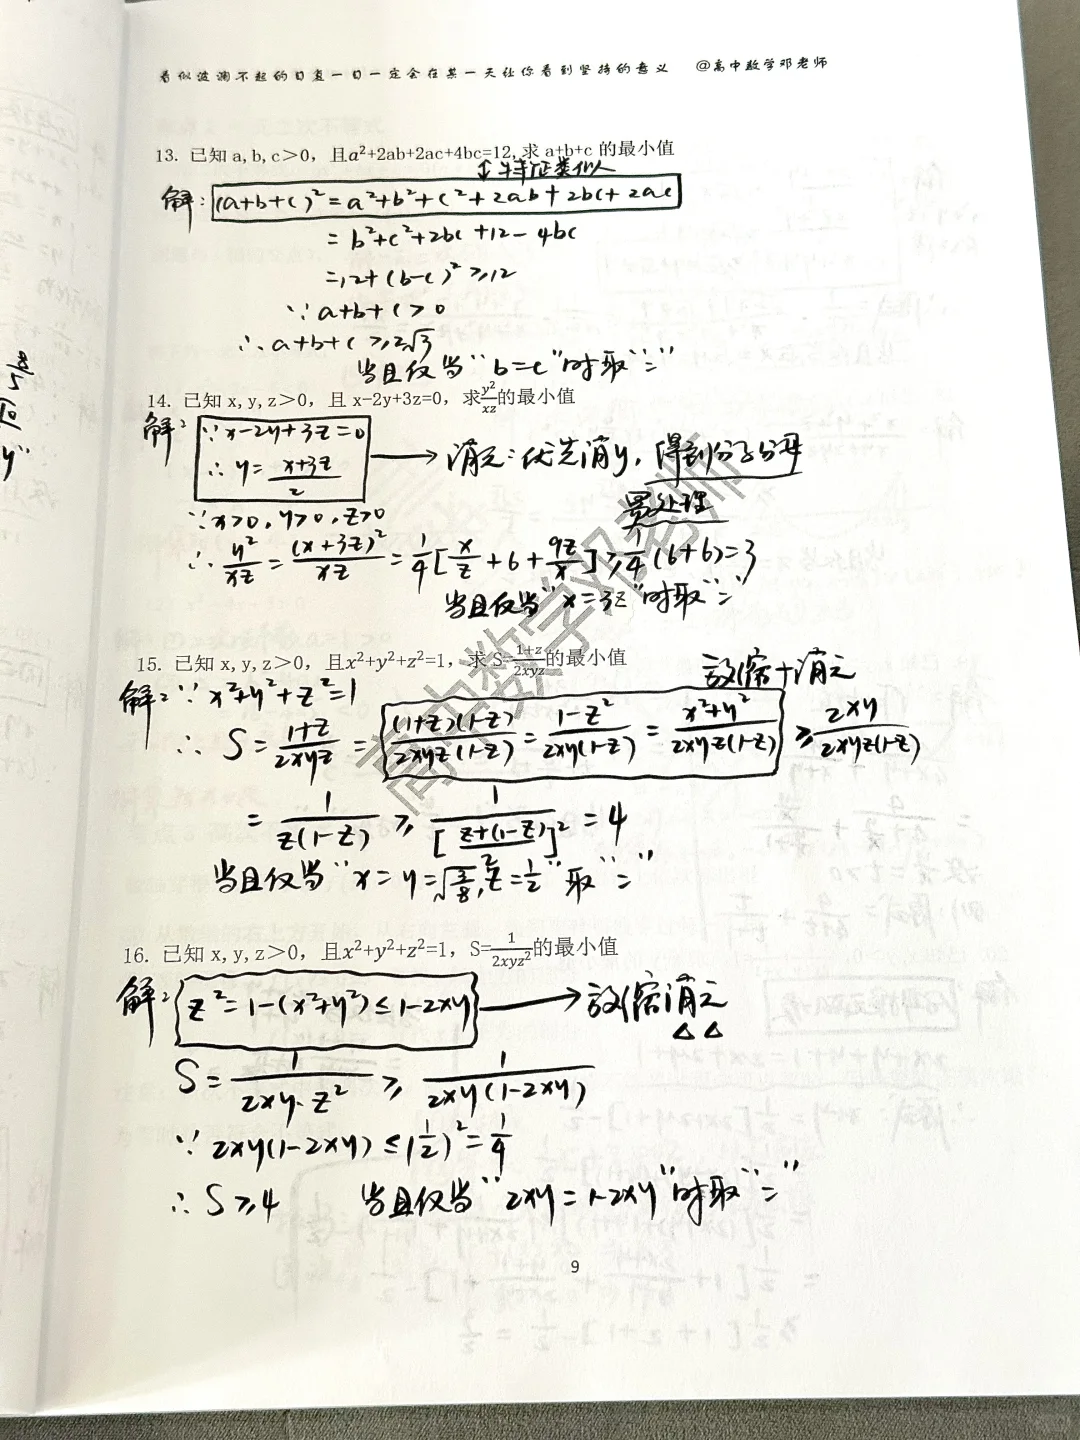 看似波澜不起的日复一日一定会在某一天让你看到坚持的意义 @高中数学邓老师
13. 已知 a,b,c>0，且a²+2ab+2ac+4bc=12,求 a+b+c 的最小值
↕特征类似
解：(a+b+c)²=a²+b²+c²+2ab+2bc+2ac
=b²+c²+2bc+12-4bc
=12+(b-c)²≥12
∵a+b+c>0
∴a+b+c≥2√3
当且仅当"b=c"时取"="
14. 已知 x,y,z>0，且 x-2y+3z=0，求y²/xz的最小值
解：∵x-2y+3z=0
∴y=(x+3z)/2
→消元：优先消y，得到分子分母
易处理
∵x>0,y>0,z>0
∴y²/xz=(x+3z)²/xz=1/4[x/z+6+9z/x]≥1/4(6+6)=3
当且仅当"x=3z"时取"="
15. 已知 x,y,z>0，且x²+y²+z²=1，求 S=(1+z)/2xyz的最小值
放缩+消元
解：∵x²+y²+z²=1
∴S=(1+z)/2xyz=(1+z)(1-z)/2xyz(1-z)=(1-z²)/2xy(1-z)=(x²+y²)/2xyz(1-z)≥2xy/2xyz(1-z)
=1/z(1-z)≥1/[(z+(1-z))/2]²=4
当且仅当"x=y=√(3/8),z=1/2"取"="
16. 已知 x,y,z>0，且x²+y²+z²=1，S=1/2xyz²的最小值
解：z²=1-(x²+y²)≤1-2xy→放缩消元
S=1/2xy·z²≥1/2xy(1-2xy)
∵2xy(1-2xy)≤(1/2)²=1/4
∴S≥4 当且仅当"2xy=1-2xy"时取"="
高中数学邓老师
9